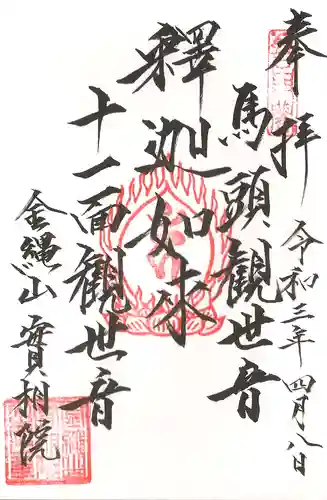 奉拝
令和三年四月八日
馬頭観世音
釋迦如來
十一面観世音
金縄山 實相院